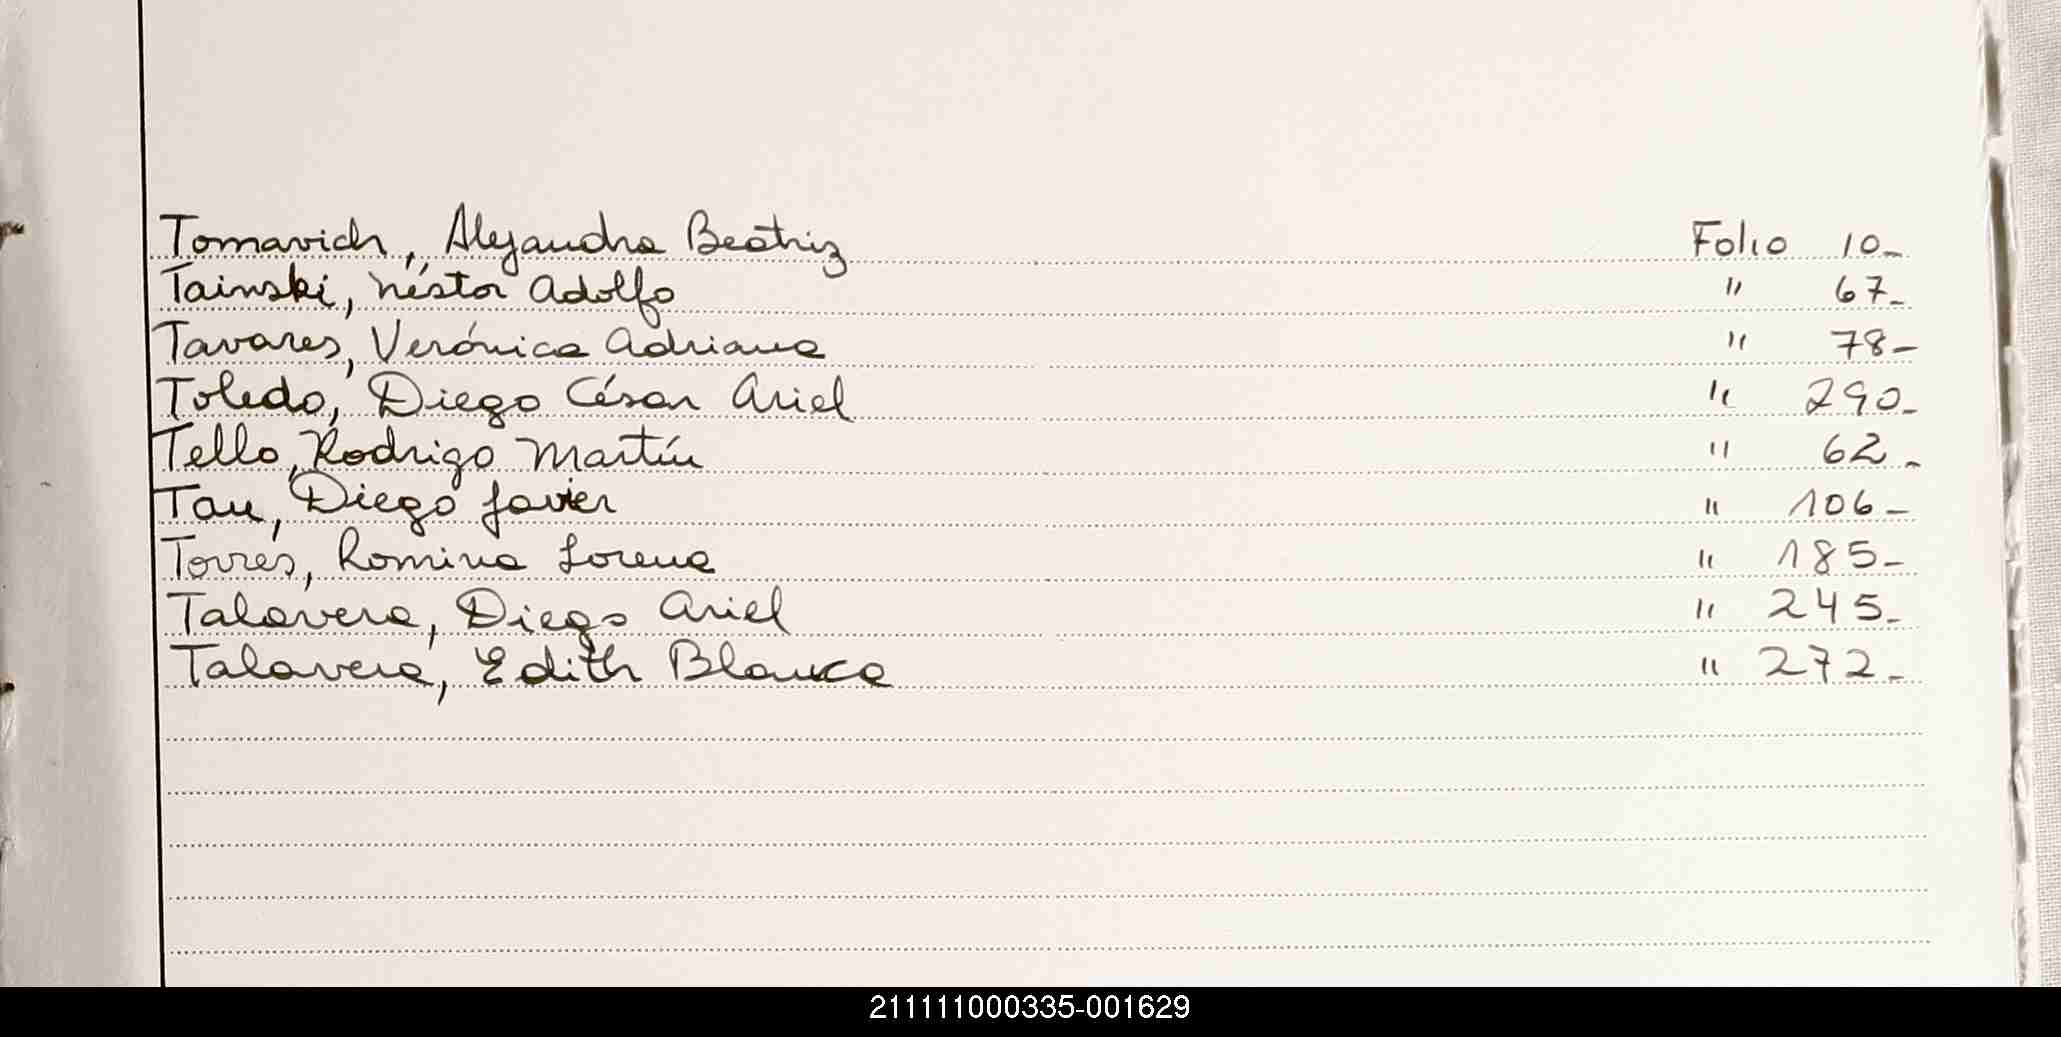 Tomavich, Alejandra Beatriz Folio 10-
Tainski, Néstor Adolfo " 67-
Tavares, Verónica Adriana " 78-
Toledo, Diego César Ariel " 290-
Tello, Rodrigo Martín " 62-
Tau, Diego Javier " 106-
Torres, Romina Lorena " 185-
Talavera, Diego Ariel " 245-
Talavera, Edith Blanca " 272-
211111000335-001629